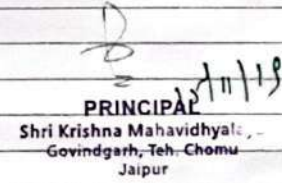 12/11/19
PRINCIPAL
Shri Krishna Mahavidhyala
Govindgarh, Teh. Chomu
Jaipur